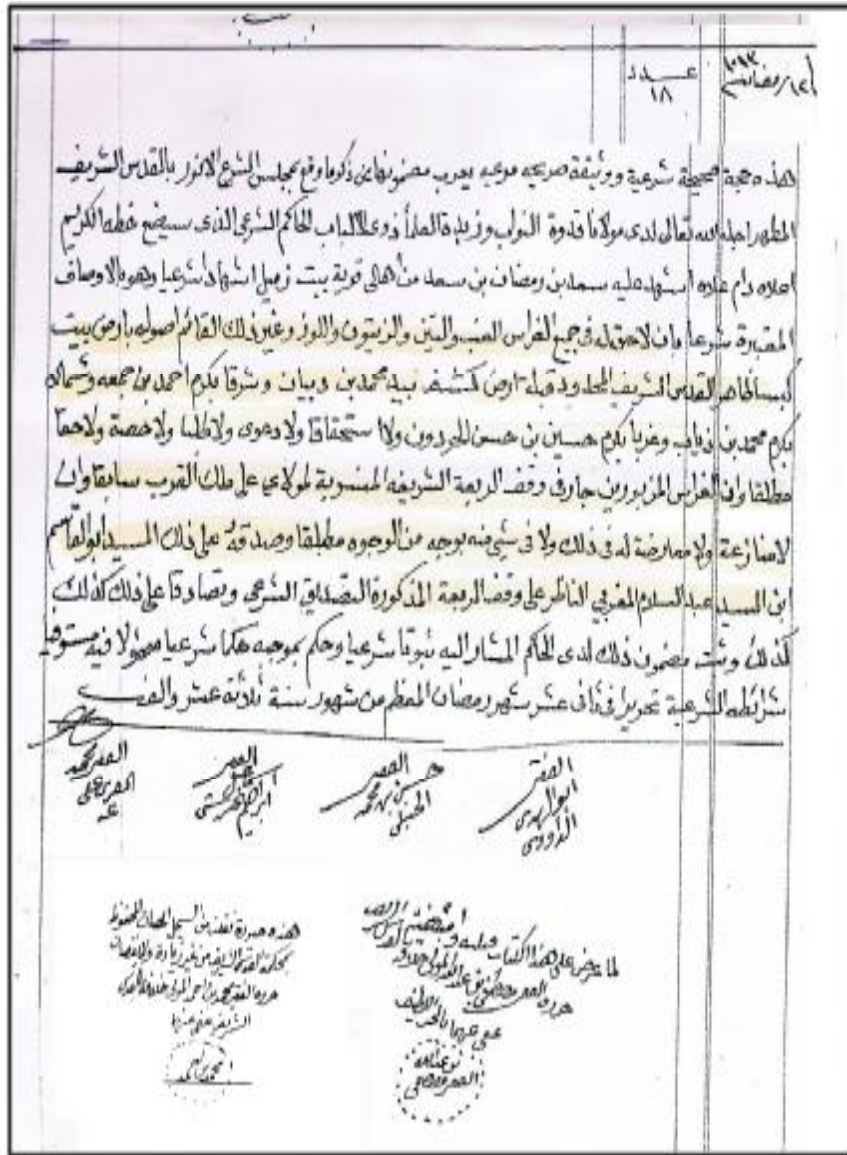 ١٢ رمضان سنة ١٠١٣
عدد
١٨
هذه حجة صحيحة شرعية ووثيقة صريحه مرعيه يعرب مضمونها عن ذكر ما وقع بمجلس الشرع الانور بالقدس الشريف
المطهر اجله الله تعالى لدى مولانا قدوة النواب وزبدة العلماء ذوي الالباب الحاكم الشرعي الذي سيضع خطه الكريم
اعلاه دام علاه اشهد عليه سعد بن رمضان بن سعد من اهالي قرية بيت زميل اشهادا شرعيا وهو بالاوصاف
المعتبرة شرعا بان لا حق له في جميع الغراس العنب والتين والزيتون واللوز وغير ذلك القائم اصوله بارض بيت
كبسا بظاهر القدس الشريف المحدود قبلة بارض كشف بيد محمد بن دبيان وشرقا بكرم احمد بن جمعه وشماله
بكرم محمد بن ذياب وغربا بكرم حسين بن حسن الحردون ولا استحقاقا ولا دعوى ولا طلبا ولا حصة ولا حقا
مطلقا وان الغراس المزبور جار في وقف الربعة الشريفه المنسوبة لمولاي علي ملك الغرب سابقا وان
لا منازعة ولا معارضة له في ذلك ولا في شي منه بوجه من الوجوه مطلقا وصدقه على ذلك السيد ابو القاسم
ابن السيد عبد السلام المغربي الناظر على وقف الربعة المذكورة التصديق الشرعي وتصادقا على ذلك كذلك
كذلك وثبت مضمون ذلك لدى الحاكم المشار اليه ثبوتا شرعيا وحكم بموجبه حكما شرعيا مسؤولا فيه مستوفيا
شرائطه الشرعية تحريرا في ثاني عشر شهر رمضان المعظم من شهور سنة ثلاثة عشر والف
الفقير ابو الهدى الداودي
الفقير حسن بن محمد الحنبلي
الفقير ابراهيم
الفقير محمد المصري عفي عنه
لما عرض علي هذا الكتاب
عفي عنهما
هذه صورة نقلت من السجل المصان المحفوظ
بمحكمة القدس الشريف من غير زيادة ولا نقصان
حرره الفقير محمد بن احمد المولى خلافة بالقدس
الشريف عفي عنهما